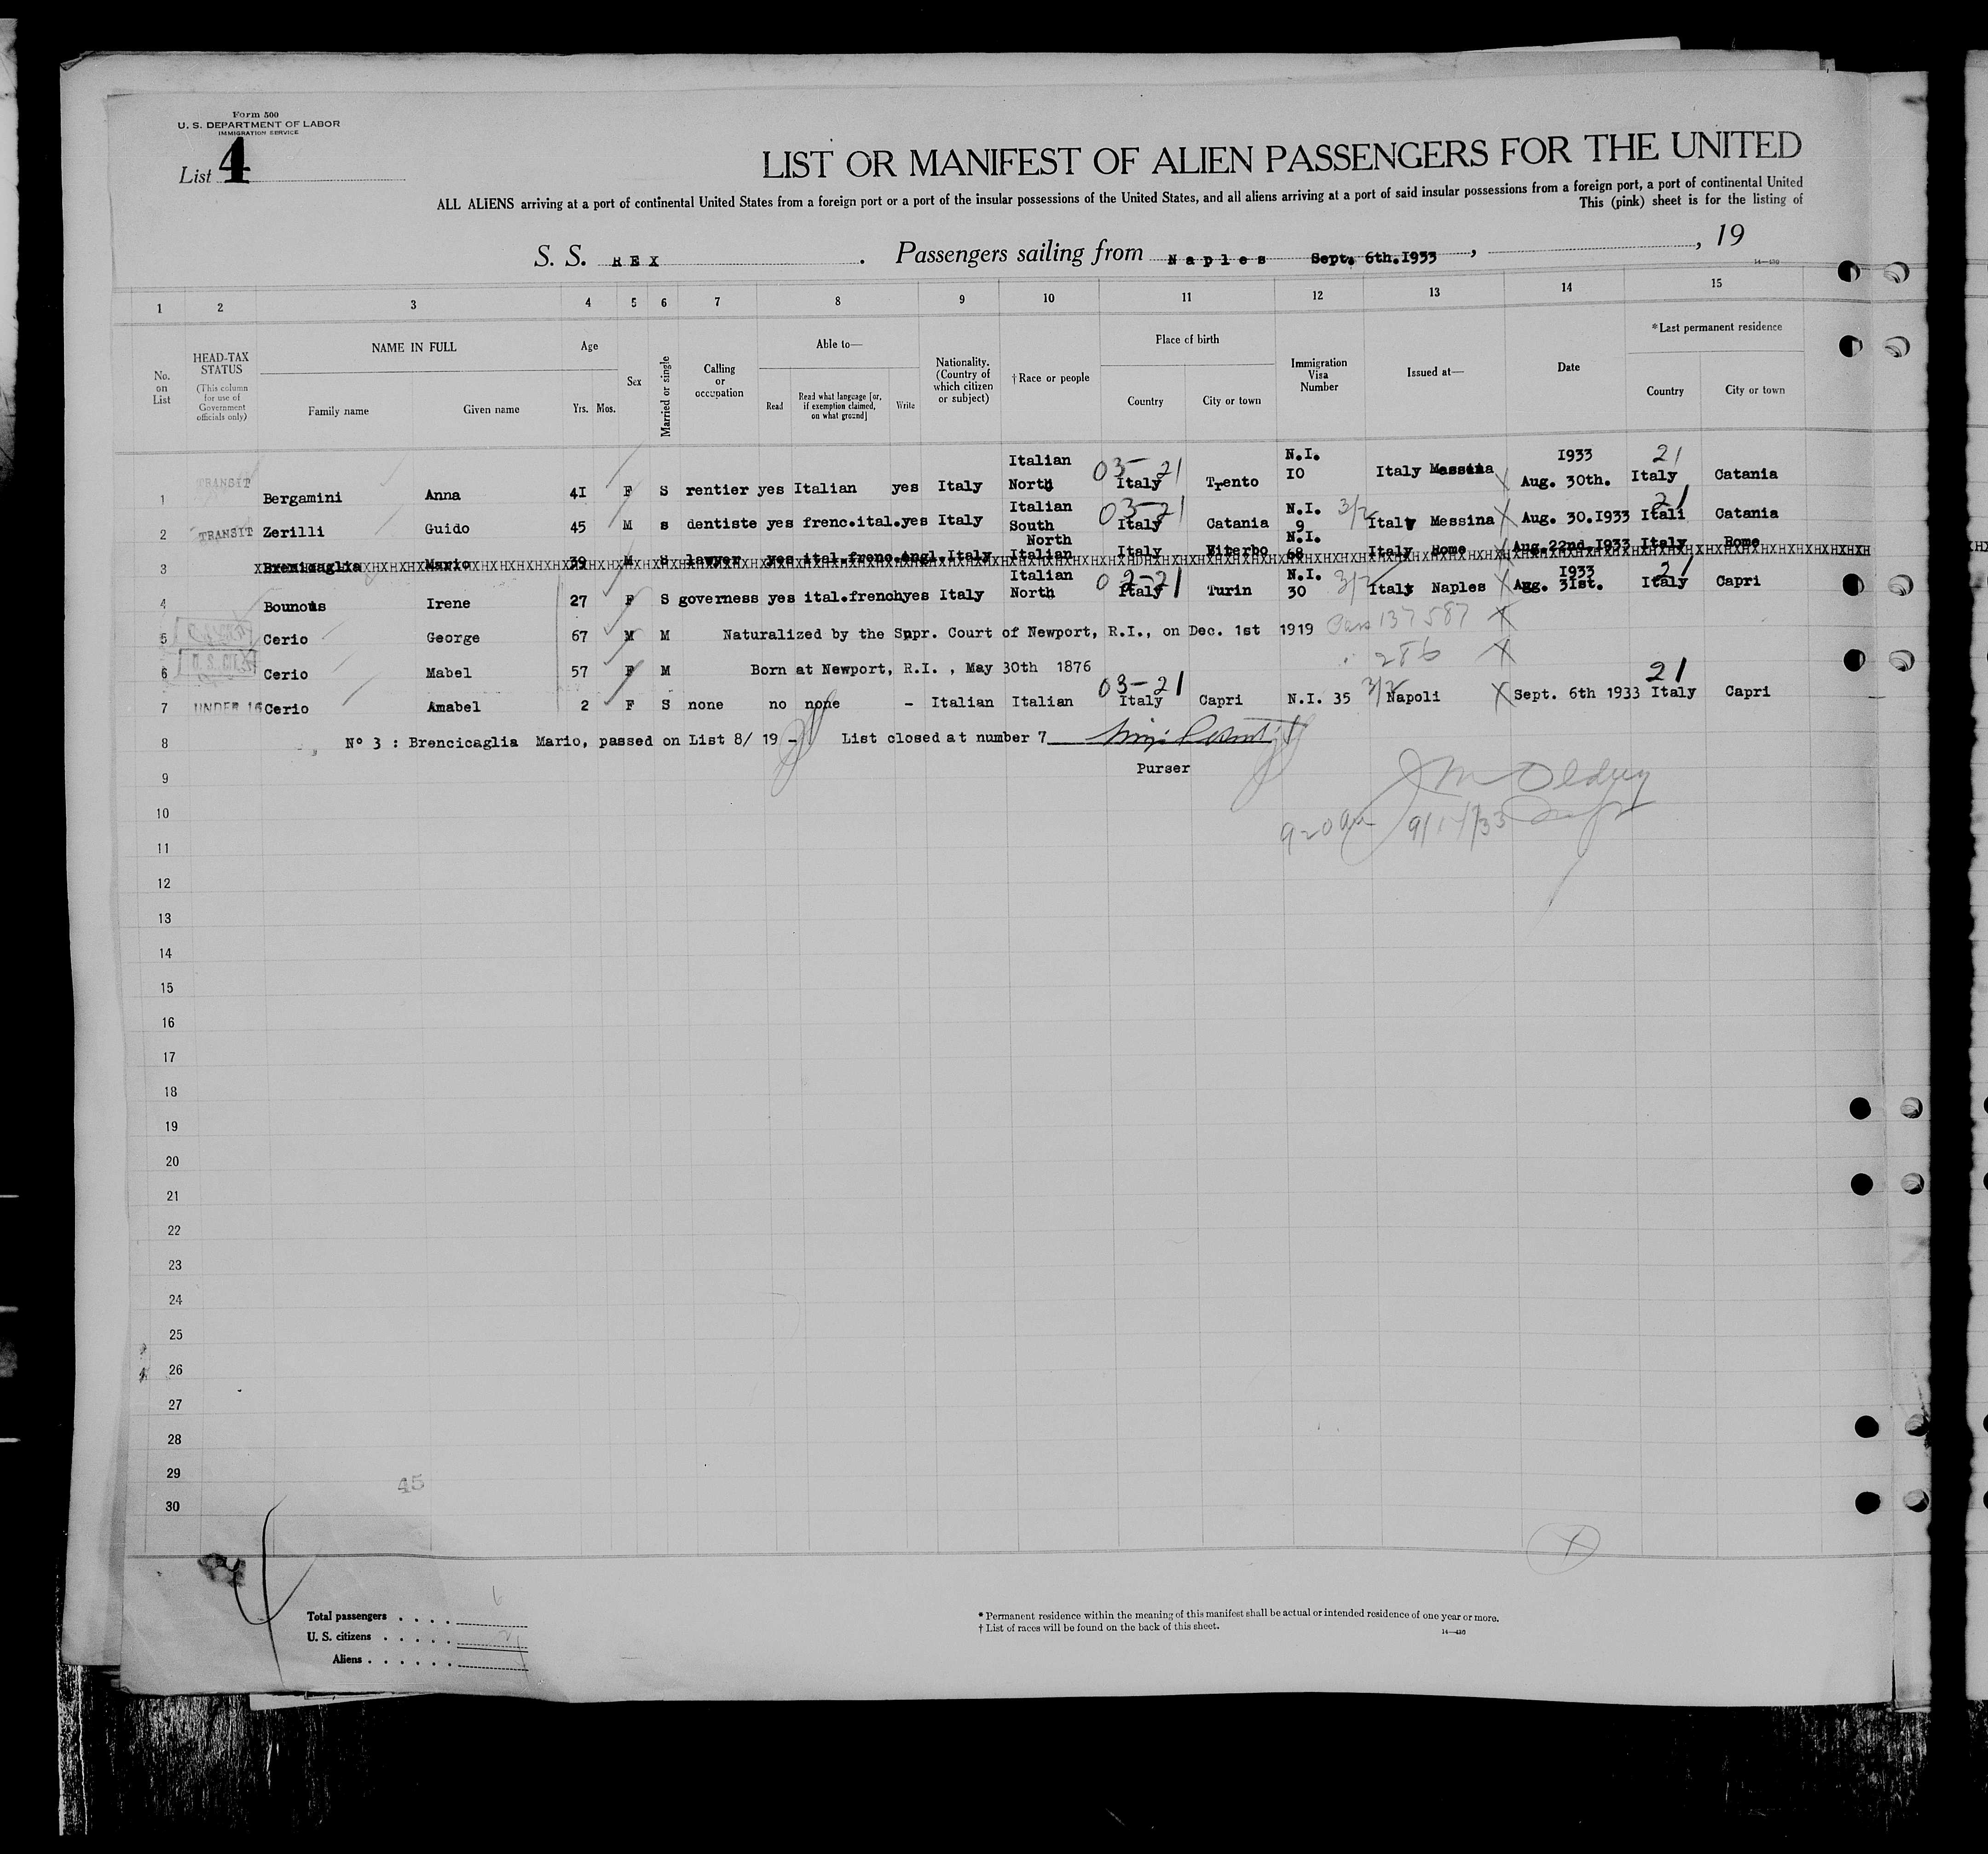 Form 500
U. S. DEPARTMENT OF LABOR
IMMIGRATION SERVICE
List 4
LIST OR MANIFEST OF ALIEN PASSENGERS FOR THE UNITED
ALL ALIENS arriving at a port of continental United States from a foreign port or a port of the insular possessions of the United States, and all aliens arriving at a port of said insular possessions from a foreign port, a port of continental United
This (pink) sheet is for the listing of
S. S. REX . Passengers sailing from Naples Sept. 6th.I933 , , 19
14—430
1 2 3 4 5 6 7 8 9 10 11 12 13 14 15
No. on List
HEAD-TAX STATUS (This column for use of Government officials only)
NAME IN FULL
Family name Given name
Age
Yrs. Mos.
Sex
Married or single
Calling or occupation
Able to—
Read Read what language [or, if exemption claimed, on what ground] Write
Nationality. (Country of which citizen or subject)
† Race or people
Place of birth
Country City or town
Immigration Visa Number
Issued at—
Date
* Last permanent residence
Country City or town
1 TRANSIT Bergamini Anna 4I F S rentier yes Italian yes Italy Italian North 03-21 Italy Trento N.I. IO Italy Messina I933 Aug. 30th. 21 Italy Catania
2 TRANSIT Zerilli Guido 45 M s dentiste yes frenc.ital.yes Italy Italian South 03-21 Italy Catania N.I. 9 3/2 Italy Messina Aug. 30.I933 21 Itali Catania
3 Brenicaglia Mario 39 M S lawyer yes ital.frenc.engl.Italy North Italian Italy Viterbo N.I. 68 Italy Rome Aug.22nd I933 Italy Rome
4 Bounous Irene 27 F S governess yes ital.frenchyes Italy Italian North 02-21 Italy Turin N.I. 30 3/2 Italy Naples I933 Aug. 3Ist. 21 Italy Capri
5 U.S.CIT. Cerio George 67 M M Naturalized by the Supr. Court of Newport, R.I., on Dec. 1st 1919 Pass 137587
6 U.S.CIT. Cerio Mabel 57 F M Born at Newport, R.I. , May 30th 1876 286
7 UNDER 16 Cerio Amabel 2 F S none no none - Italian Italian 03-21 Italy Capri N.I. 35 3/2 Napoli Sept. 6th 1933 21 Italy Capri
8 Nº 3 : Brencicaglia Mario, passed on List 8/ 19 - List closed at number 7
9 Purser
10 920 am
11
12
13
14
15
16
17
18
19
20
21
22
23
24
25
26
27
28
29
45
30
Total passengers . . . .
U. S. citizens . . . . . 2
Aliens . . . . . .
* Permanent residence within the meaning of this manifest shall be actual or intended residence of one year or more.
† List of races will be found on the back of this sheet.
14—430